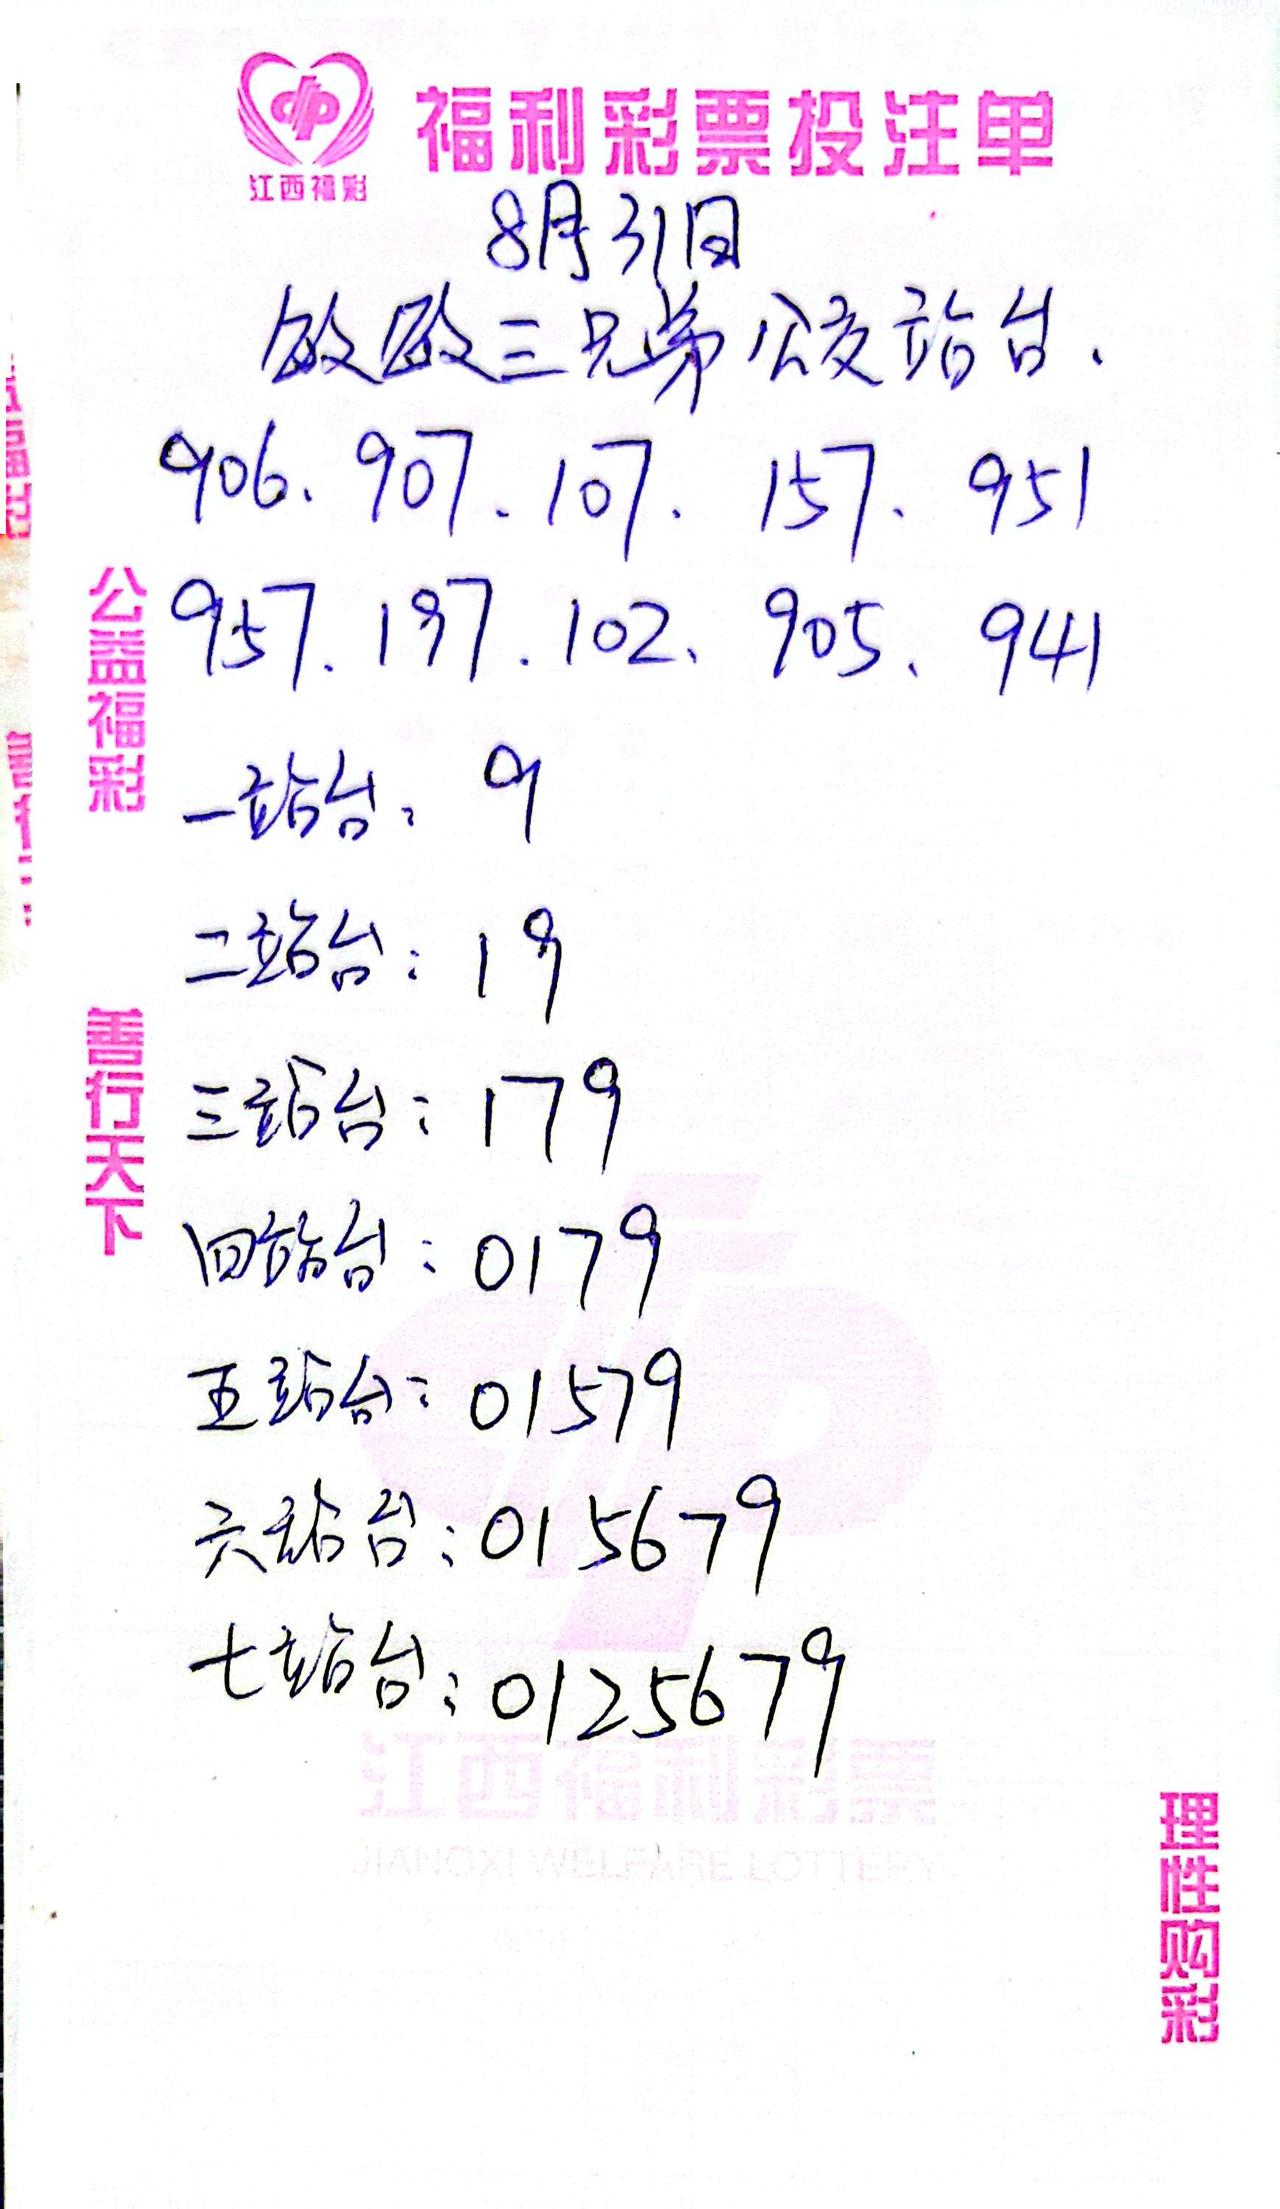 福利彩票投注单
江西福彩
8月31日
三兄弟公交站台.
906. 907. 107. 157. 951
957. 197. 102. 905. 941
公益福彩
一站台: 9
二站台: 19
善行天下
三站台: 179
四站台: 0179
五站台: 01579
六站台: 015679
七站台: 0125679
江西福利彩票
JIANGXI WELFARE LOTTERY
理性购彩